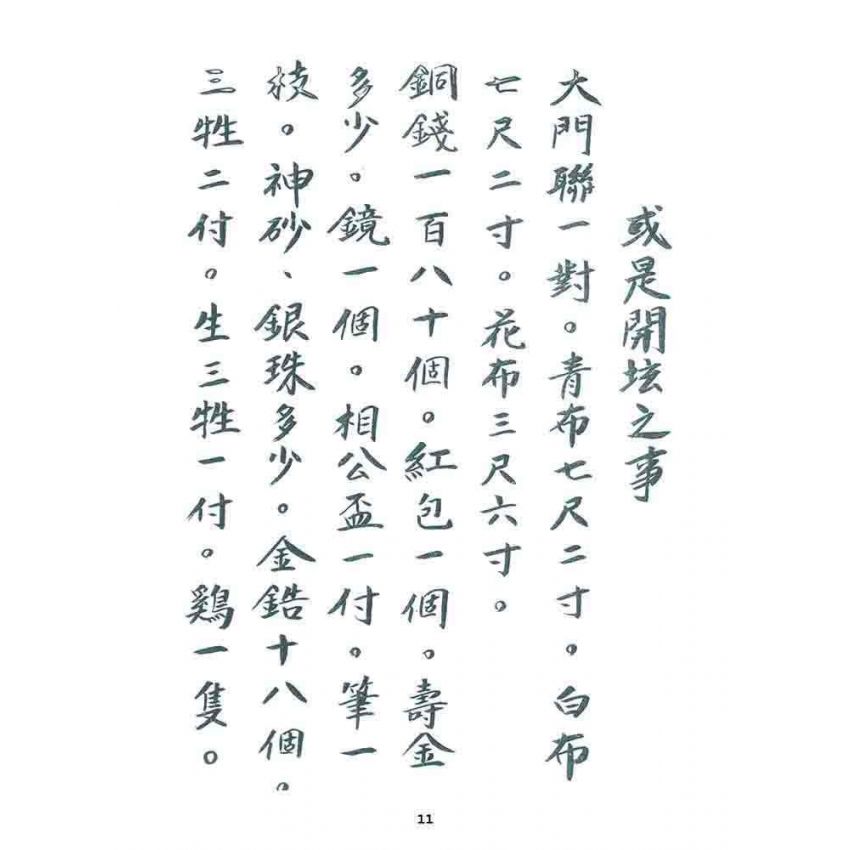 或是開坛之事
大門聯一對。青布七尺二寸。白布
七尺二寸。花布三尺六寸。
銅錢一百八十個。紅包一個。壽金
多少。鏡一個。相公盃一付。筆一
枝。神砂、銀珠多少。金鋯十八個。
三牲二付。生三牲一付。鷄一隻。
11